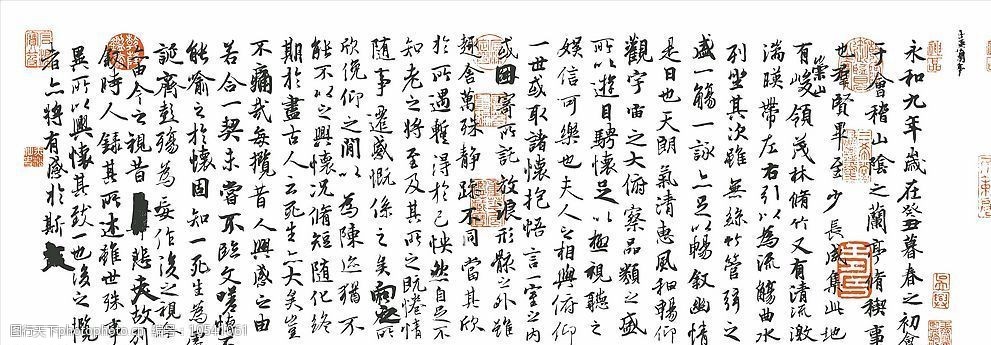 永和九年歲在癸丑暮春之初會
于會稽山陰之蘭亭脩稧事
也羣賢畢至少長咸集此地
有崇山峻領茂林脩竹又有清流激
湍暎帶左右引以為流觴曲水
列坐其次雖無絲竹管弦之
盛一觴一詠亦足以暢敘幽情
是日也天朗氣清惠風和暢仰
觀宇宙之大俯察品類之盛
所以遊目騁懷足以極視聽之
娛信可樂也夫人之相與俯仰
一世或取諸懷抱悟言一室之內
或因寄所託放浪形骸之外雖
趣舍萬殊靜躁不同當其欣
於所遇暫得於己怏然自足不
知老之將至及其所之既惓情
隨事遷感慨係之矣向之所
欣俛仰之閒以為陳迹猶不
能不以之興懷況脩短隨化終
期於盡古人云死生亦大矣豈
不痛哉每攬昔人興感之由
若合一契未嘗不臨文嗟悼
能喻之於懷固知一死生為虛
誕齊彭殤為妄作後之視
由今之視昔悲夫故列
敘時人錄其所述雖世殊事
異所以興懷其致一也後之攬
者亦將有感於斯文